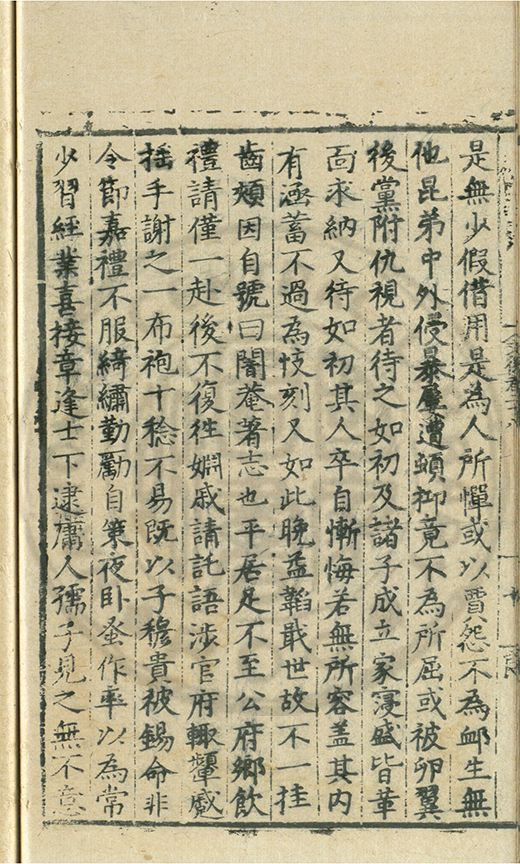 是無少假借用是為人所憚或以賈怨不為卹生無
他昆弟中外侵暴屢遭頓抑竟不為所屈或被卵翼
後黨附仇視者待之如初及諸子成立家寖盛皆革
面求納又待如初其人卒自慚悔若無所容盖其内
有涵蓄不過為忮刻又如此晚益韜戢世故不一挂
齒頰因自號曰闇菴著志也平居足不至公府鄉飲
禮請僅一赴後不復徃婣戚請託語涉官府輙顰蹙
揺手謝之一布袍十稔不易既以子穆貴被錫命非
令節嘉禮不服綺繡勤勵自䇿夜卧蚤作率以為常
少習經業喜接章逢士下逮庸人孺子見之無不意